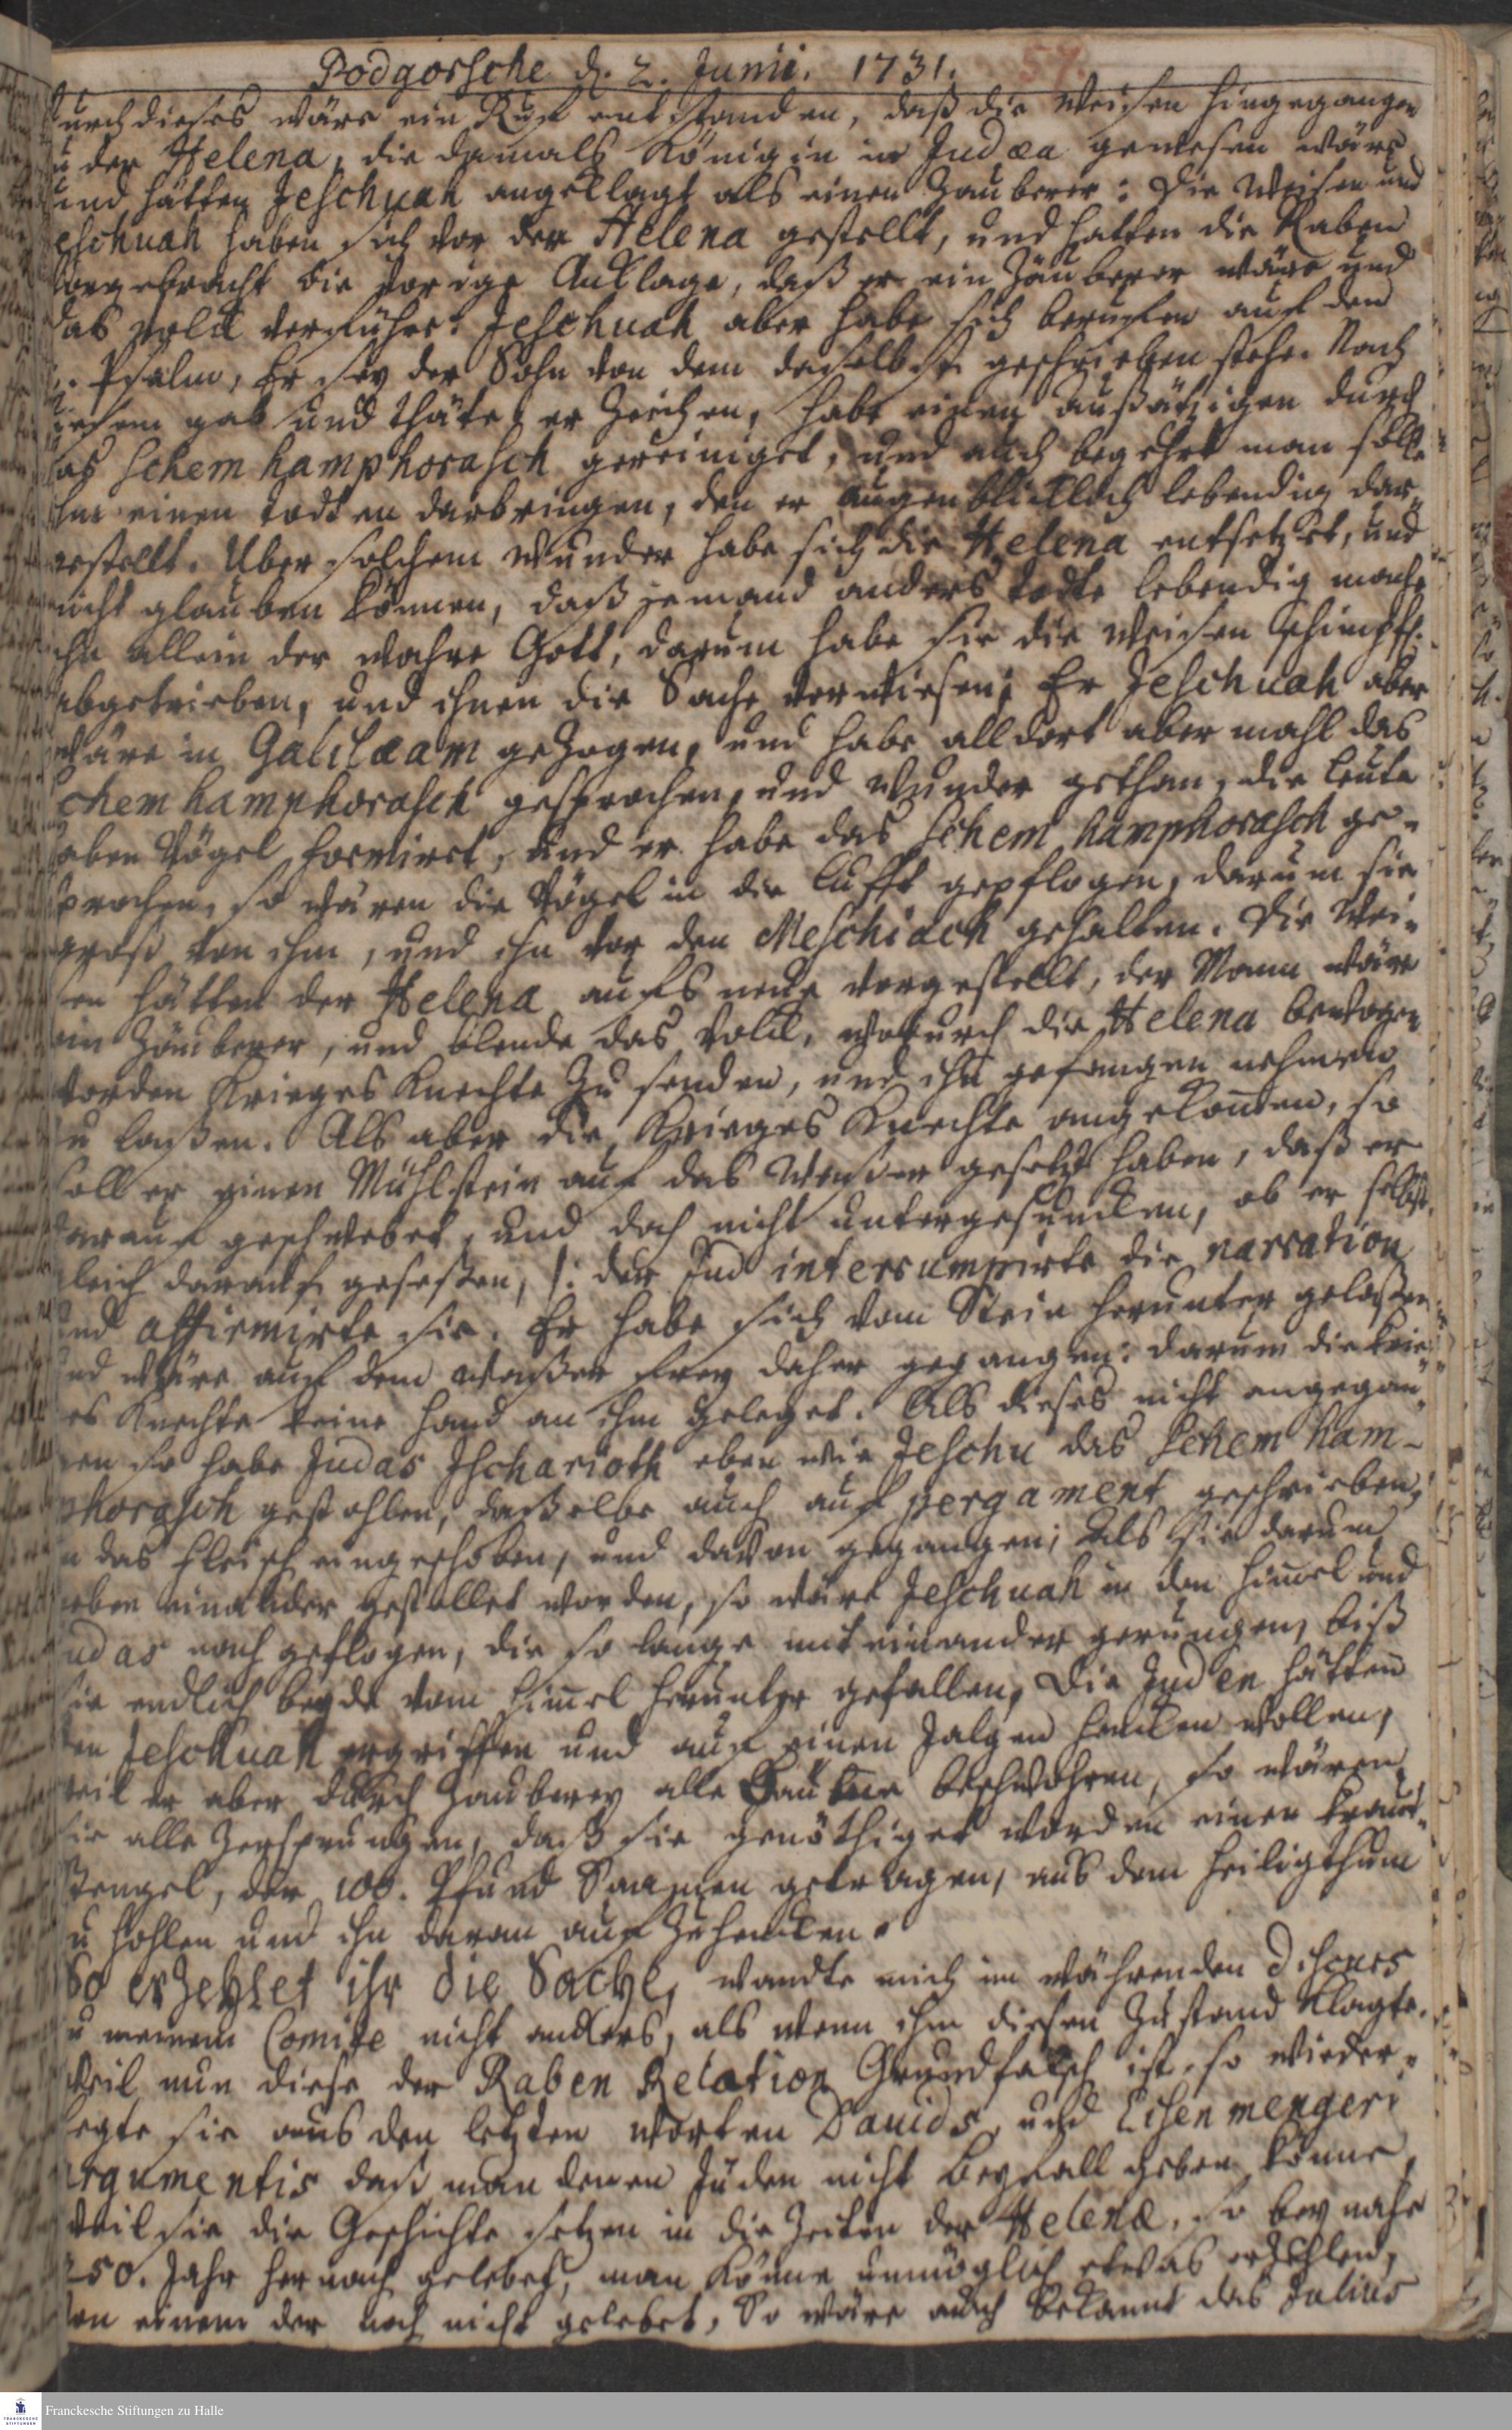 Podgorsche d. 2. Junii. 1731. 57.
durch dieses wäre ein Ruf entstanden, daß die Weisen hingegangen
zu der Helena, die damals Königin in Judæa gewesen wäre,
und hätten Jeschuah angeklagt als einen Zauberer: Die Weisen und
Jeschuah haben sich vor der Helena gestellt, und hatten die Raben
vorgebracht die vorige Anklage, daß er ein Zäuberer wäre und
das volck verführe: Jeschuah aber habe sich beruffen auf den
2. Psalm, Er sey der Sohn von dem daselbst geschrieben stehe. Nach
diesem gab und thäte er Zeichen, habe einen außätzigen durch
das Schem hamphorasch gereiniget, und auch begehrt man solle
ihm einen todten darbringen, den er augenblicklich lebendig dar-
gestellt. Uber solchem Wunder habe sich die Helena entsetzet, und
nicht glauben können, daß jemand anders todte lebendig mache
ohn allein der wahre Gott, darum habe sie die Weisen schimpfl.
abgetrieben, und ihnen die Sache verwiesen; Er Jeschuah aber
wäre in Galilæam gezogen, und habe alldort aber mahl das
Schem hamphorasch gesprochen, und Wunder gethan, die Leute
haben Vögel formiret, und er habe das Schem hamphorasch ge-
sprochen, so wären die Vögel in die Lufft gepflogen, darum sie
groß von ihm, und ihn vor den Meschiach gehalten. Die Wei-
sen hätten der Helena aufs neue vorgestellt, der Mann wäre
ein Zäuberer, und blende das Volck, wodurch die Helena bewogen
worden Krieges Knechte zu senden, und ihn gefangen nehmen
zu laßen. Als aber die Krieges Knechte angekom̃en, so
soll er einen Mühlstein auf das Waßer gesetzt haben, daß er
darauf geschwebet, und doch nicht untergesuncken, ob er selbst
gleich darauf geseßen, /: der Jud interrumpirte die narration
und affirmirte sie. Er habe sich vom Stein herunter gelaßen
und wäre auf dem Waßer frey daher gegangen: darum die Krie-
ges Knechte keine Hand an ihm geleget. Als dieses nicht angegan-
gen so habe Judas Ischarioth eben wie Jeschu das Schem ham-
phorasch gestohlen, daßelbe auch auf pergament geschrieben,
in das Fleisch eingeschoben, und davon gegangen; Als sie darum
neben einander gestellet worden, so wäre Jeschuah in den Him̃el und
Judas nach geflogen, die so lange mit einander gerungen, biß
sie endlich beyde vom Him̃el herunter gefallen, Die Juden hätten
den Jeschuah ergriffen und auf einen Galgen hencken wollen,
weil er aber durch Zauberey alle Bäume beschwohren, so wären
sie alle zersprungen, daß sie genöthiget worden einen Kraut-
stengel, der 100. Pfund Saamen getragen, aus dem Heiligthum
zu hohlen und ihn daran auf zuhencken.
So erzehlet ihr die Sache, wandte mich im währenden Discurs
zu meinem Comite nicht anders, als wenn ihm diesen Zustand klagte.
Weil nun diese der Raben Relation Grundfalsch ist, so wieder-
legte sie aus den letzten Worten Davids, und Eisenmengeri
Argumentis daß man denen Juden nicht Beyfall geben könne,
weil sie die Geschichte setzen in die Zeiten der Helenæ, so bey nahe
250. Jahr hernach gelebet, man könne unmöglich etwas erzehlen,
von einem der noch nicht gelebet, So wäre auch bekannt das Julius
Franckesche Stiftungen zu Halle